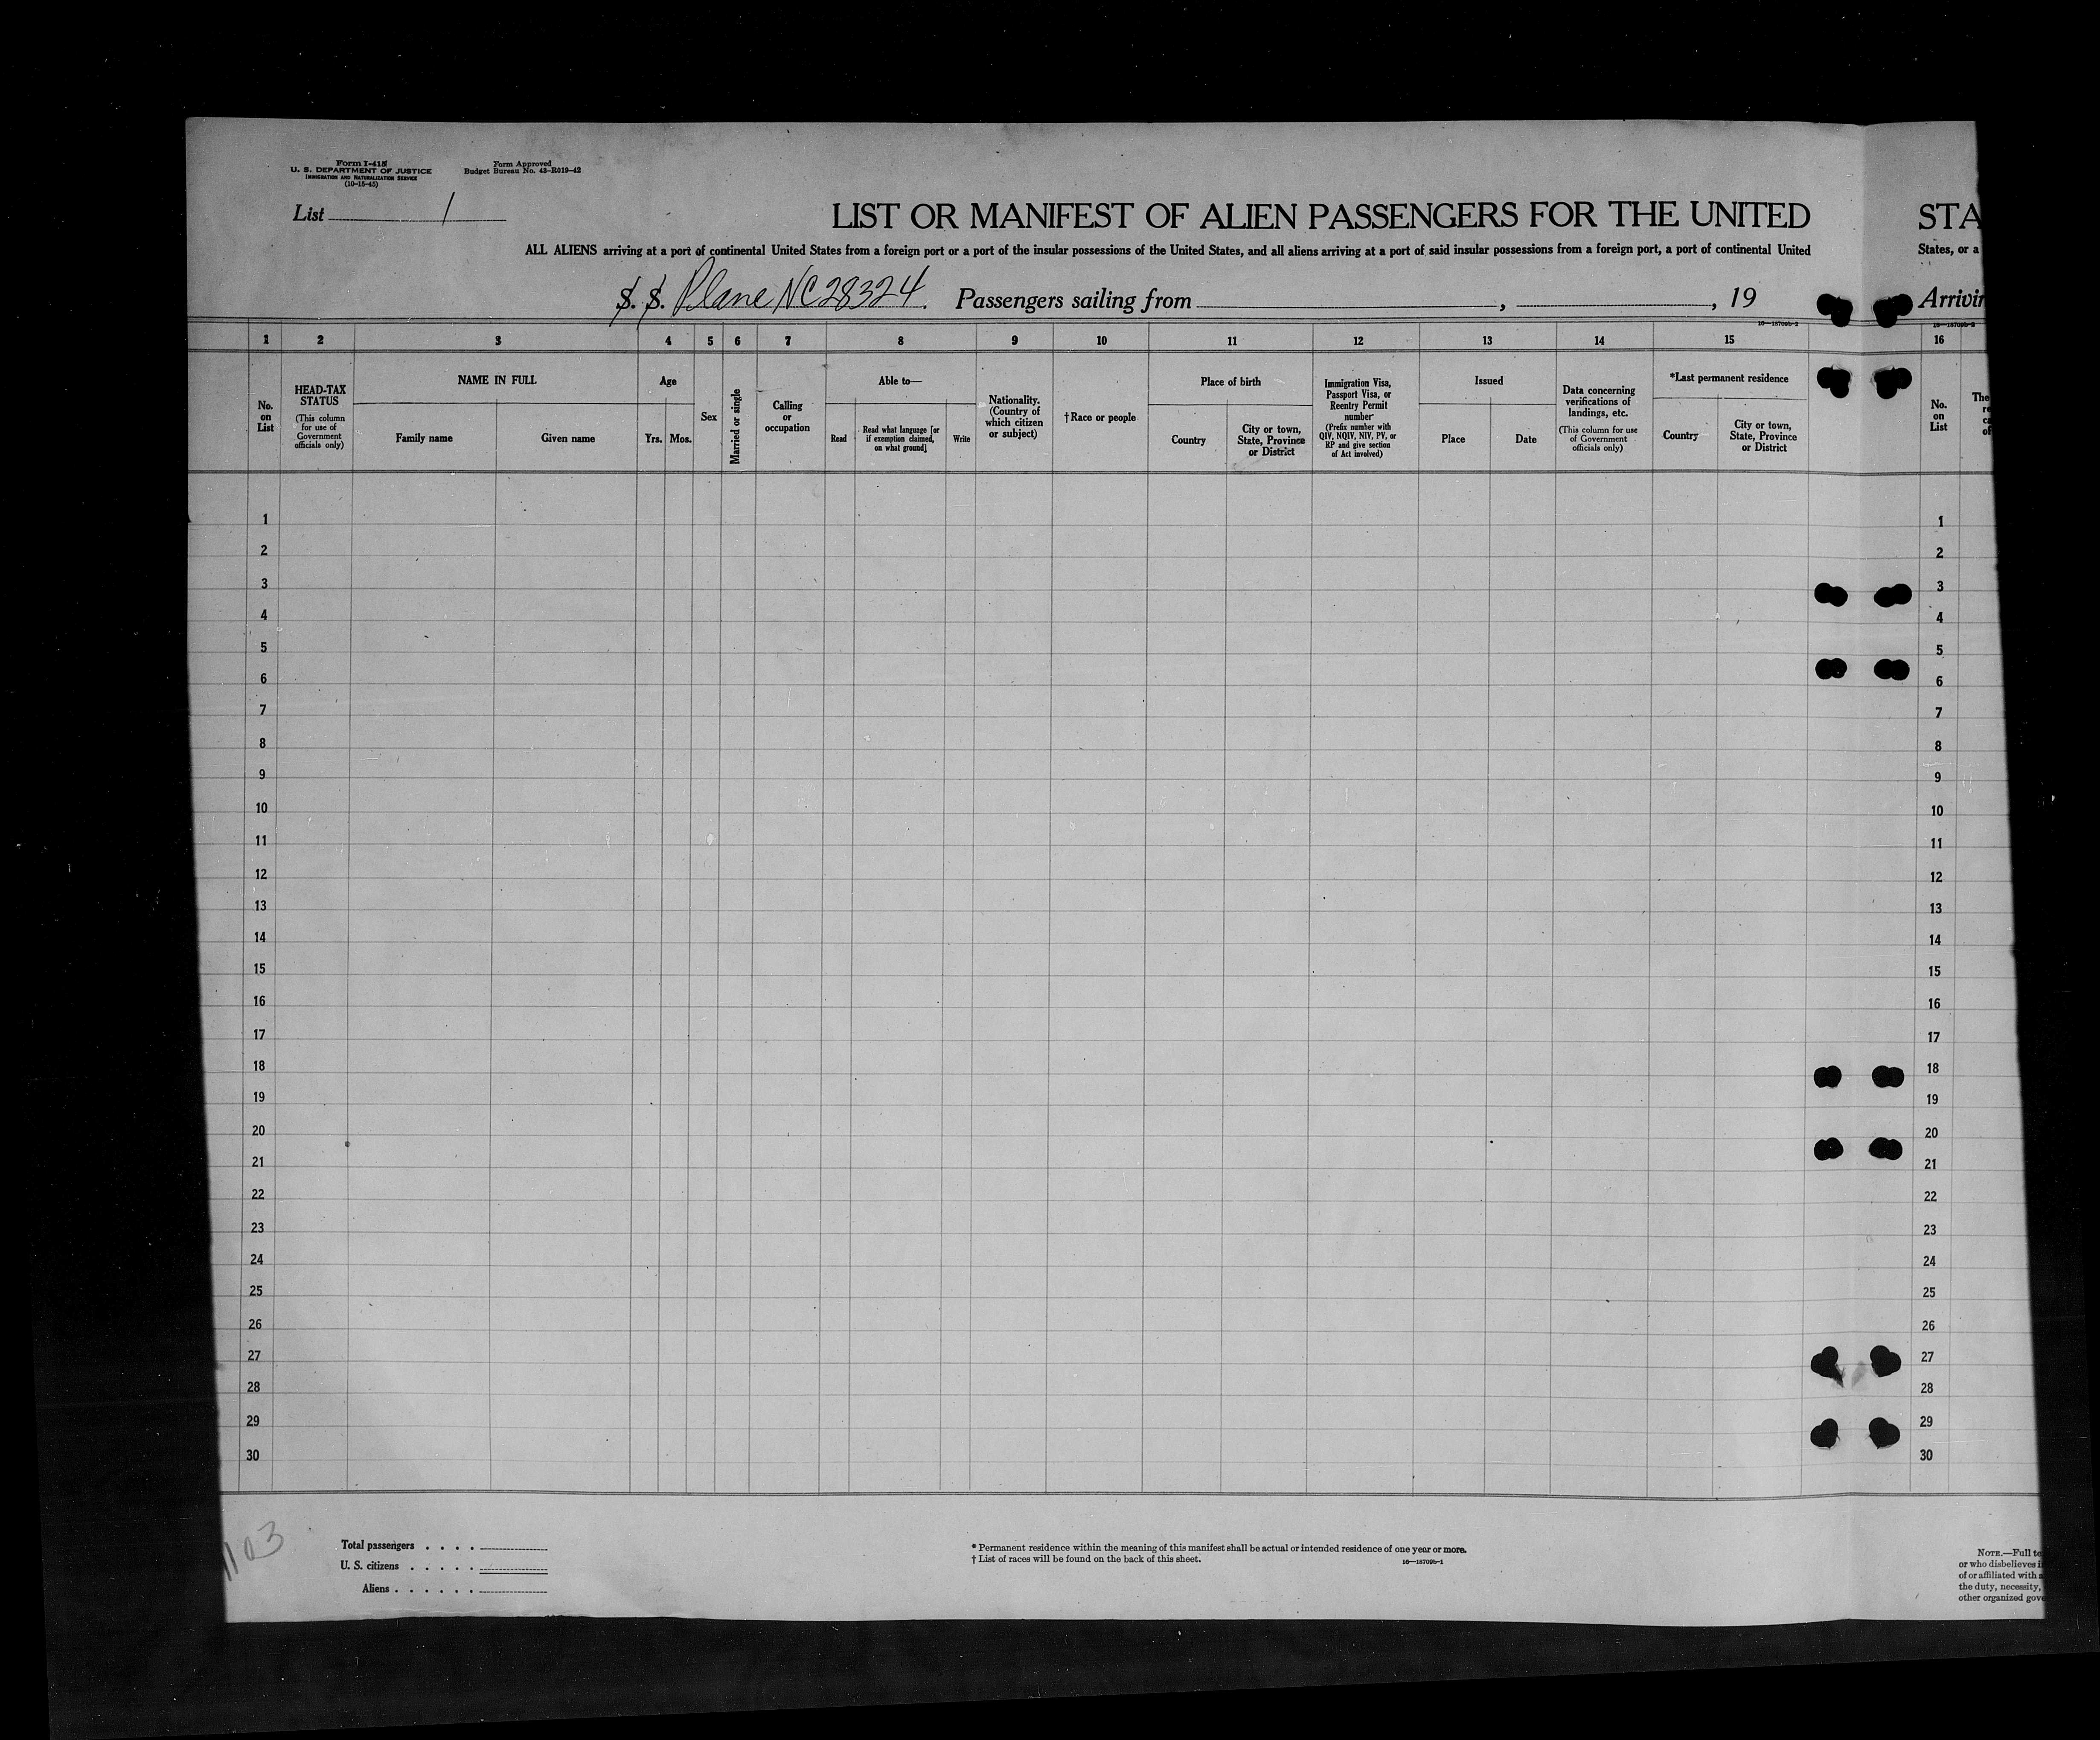 Form I-415
U. S. DEPARTMENT OF JUSTICE
IMMIGRATION AND NATURALIZATION SERVICE
(10-15-45)
Form Approved
Budget Bureau No. 43-R019-42
List 1
LIST OR MANIFEST OF ALIEN PASSENGERS FOR THE UNITED
ALL ALIENS arriving at a port of continental United States from a foreign port or a port of the insular possessions of the United States, and all aliens arriving at a port of said insular possessions from a foreign port, a port of continental United
S. S. Plane NC28324. Passengers sailing from , , 19
16—18709b-2
1 2 3 4 5 6 7 8 9 10 11 12 13 14 15
No. on List
HEAD-TAX STATUS
(This column for use of Government officials only)
NAME IN FULL
Family name
Given name
Age
Yrs. Mos.
Sex
Married or single
Calling or occupation
Able to—
Read
Read what language [or if exemption claimed, on what ground]
Write
Nationality. (Country of which citizen or subject)
†Race or people
Place of birth
Country
City or town, State, Province or District
Immigration Visa, Passport Visa, or Reentry Permit number
(Prefix number with QIV, NQIV, NIV, PV, or RP and give section of Act involved)
Issued
Place
Date
Data concerning verifications of landings, etc.
(This column for use of Government officials only)
*Last permanent residence
Country
City or town, State, Province or District
1
2
3
4
5
6
7
8
9
10
11
12
13
14
15
16
17
18
19
20
21
22
23
24
25
26
27
28
29
30
1103
Total passengers . . . .
U. S. citizens . . . . .
Aliens . . . . . .
* Permanent residence within the meaning of this manifest shall be actual or intended residence of one year or more.
† List of races will be found on the back of this sheet.
16—18709b-1
STA
States, or a
Arrivin
16—18709b-2
16
No. on List
The
1
2
3
4
5
6
7
8
9
10
11
12
13
14
15
16
17
18
19
20
21
22
23
24
25
26
27
28
29
30
NOTE.—Full te
or who disbelieves i
of or affiliated with a
the duty, necessity,
other organized gove